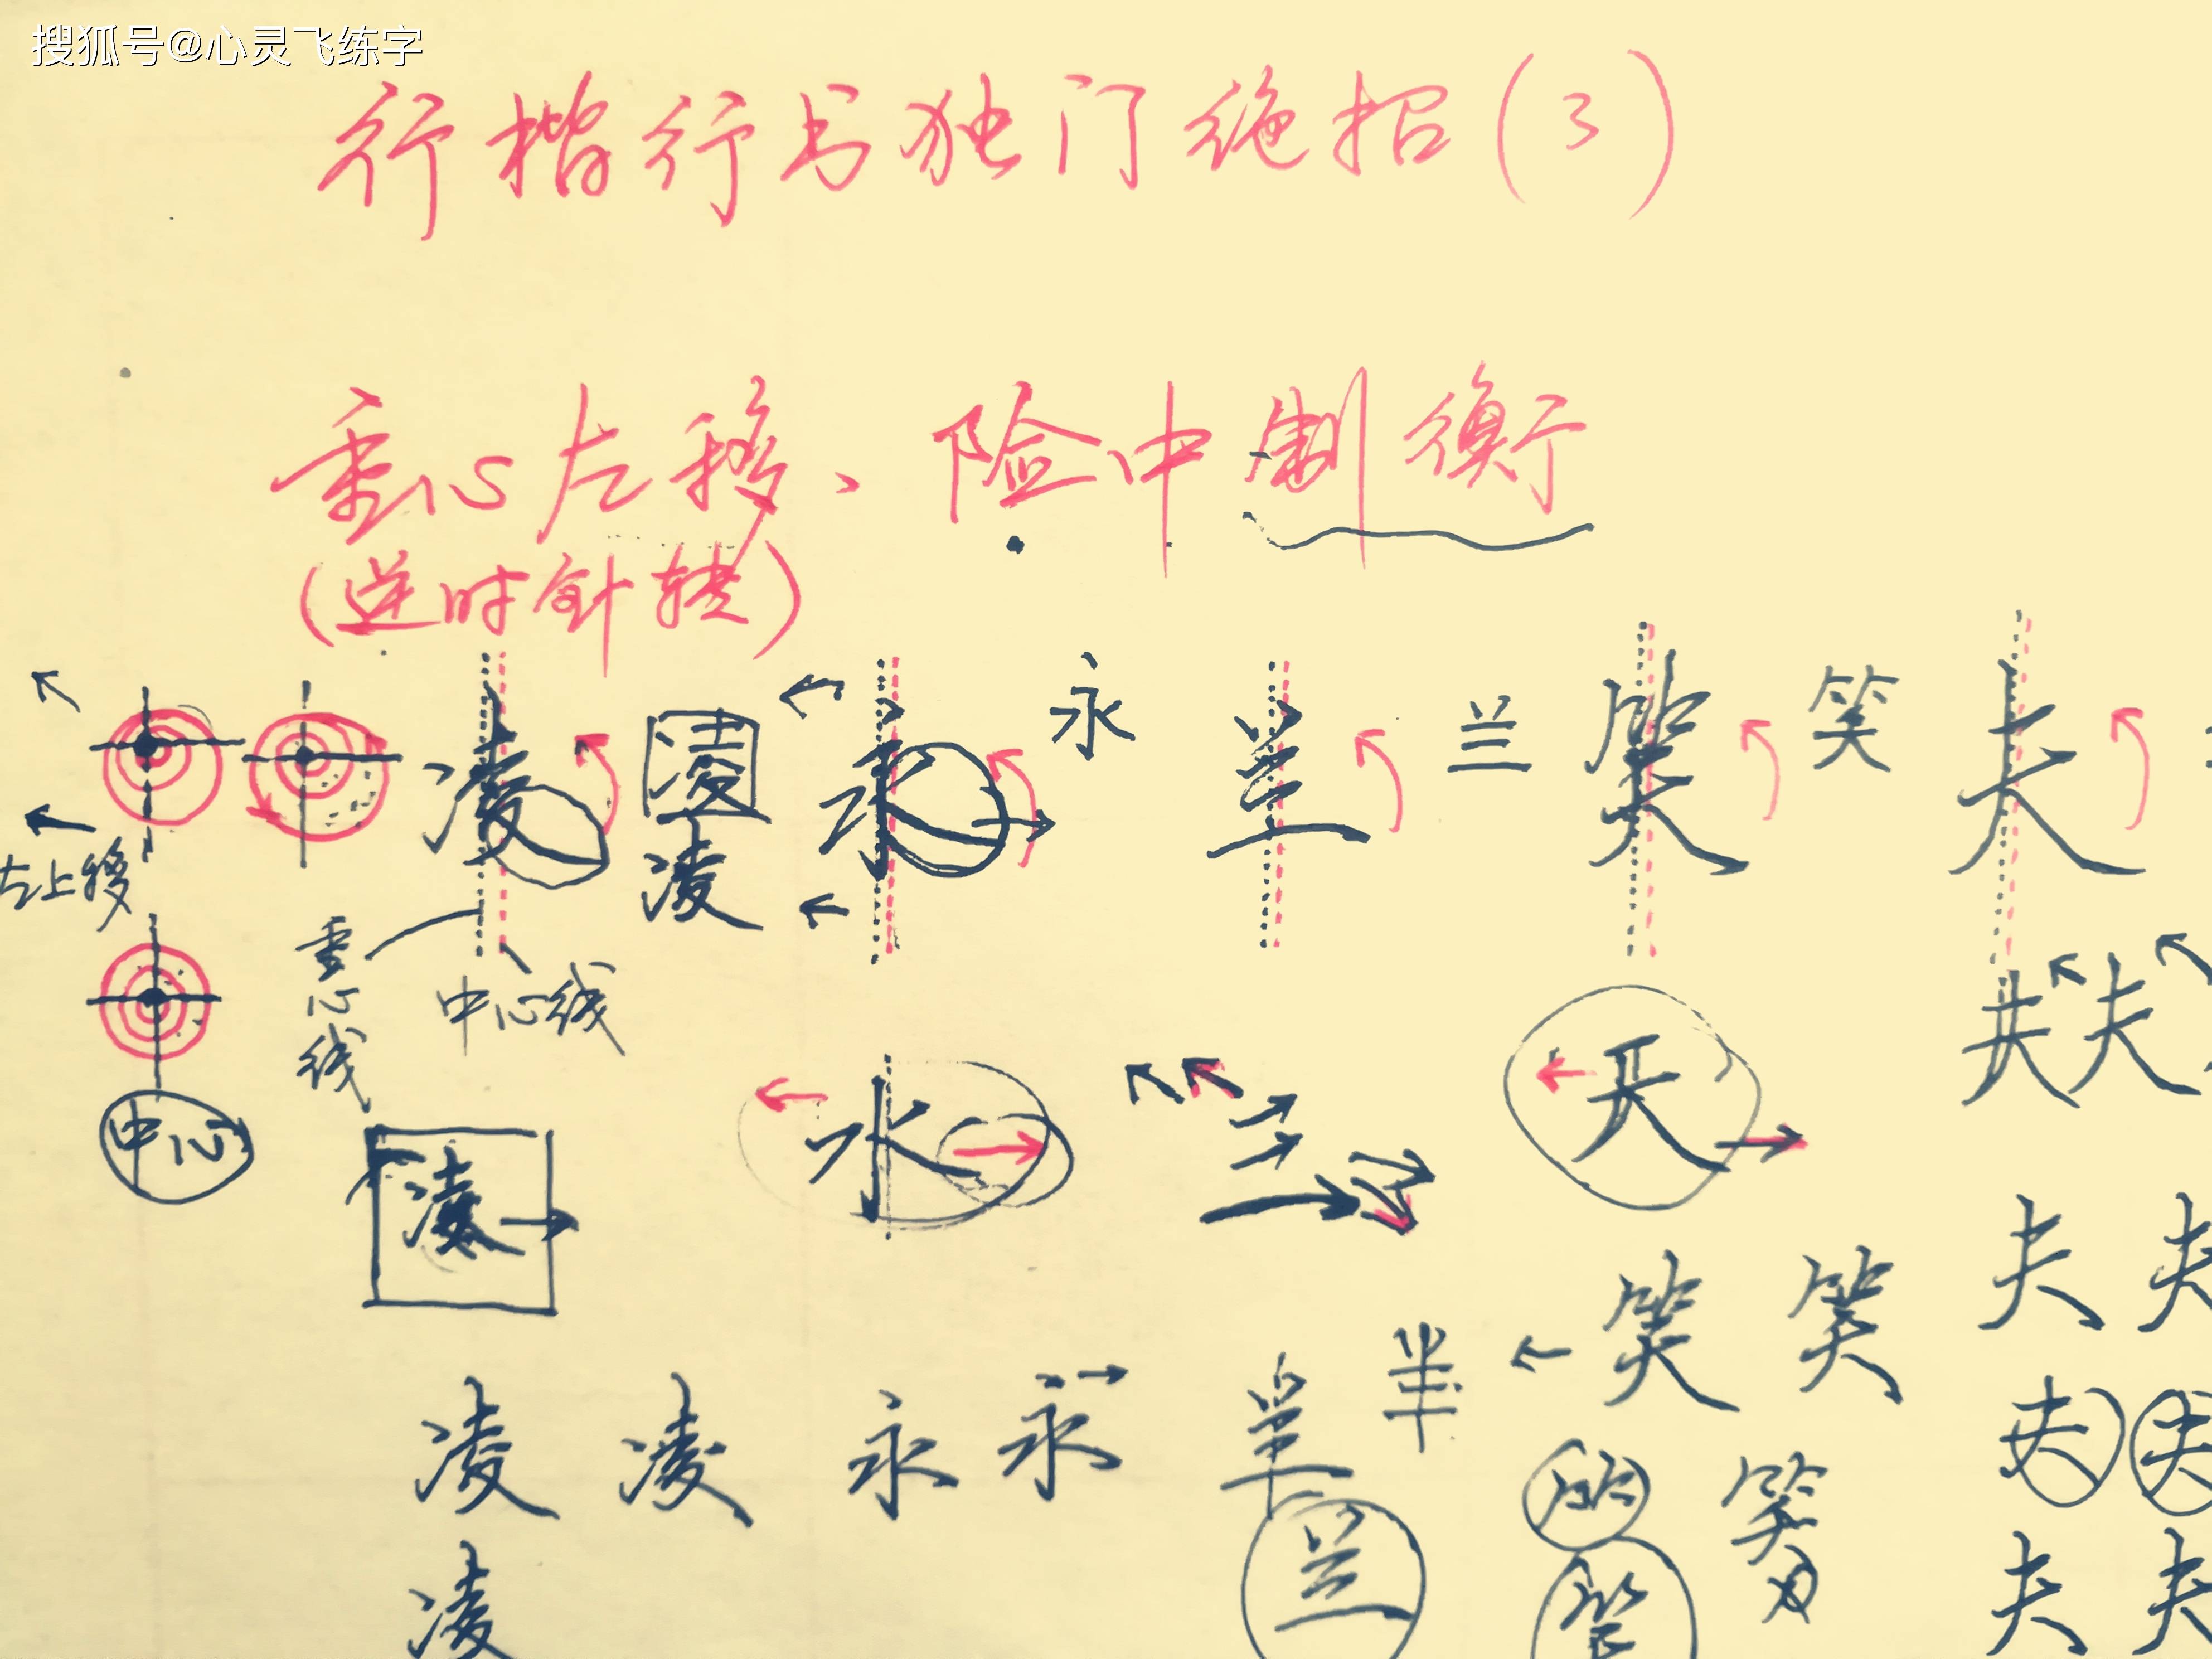 搜狐号@心灵飞练字
行楷行书独门绝招(3)
重心左移、险中制衡
(逆时针转)
凌 凌 永 永 兰 兰 笑 笑 夫
凌
左上移
重心线
中心线
夫 夫
中心
凌 水 三 天
夫 夫
笑 笑
凌 凌 永 永 羊 羊
夫 夫
兰 笑
凌 夫 夫